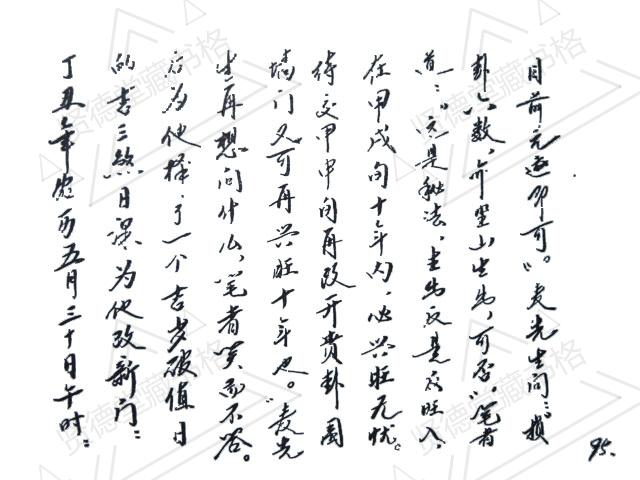 目前元运即可。"麦先生问:"损
卦六数,亦坐山出煞,可否。"笔者
道:"这是秘法,生出反是反旺入,
在甲戌旬十年内,必兴旺无忧。
待交甲申旬再改开贲卦围
墙门又可再兴旺十年也。"麦先
生再想问什么,笔者笑而不答。
后为他择了一个吉岁破值日
的吉三煞日课为他改新门:
丁丑年农历五月三十日午时:
95.
贤德堂藏书格